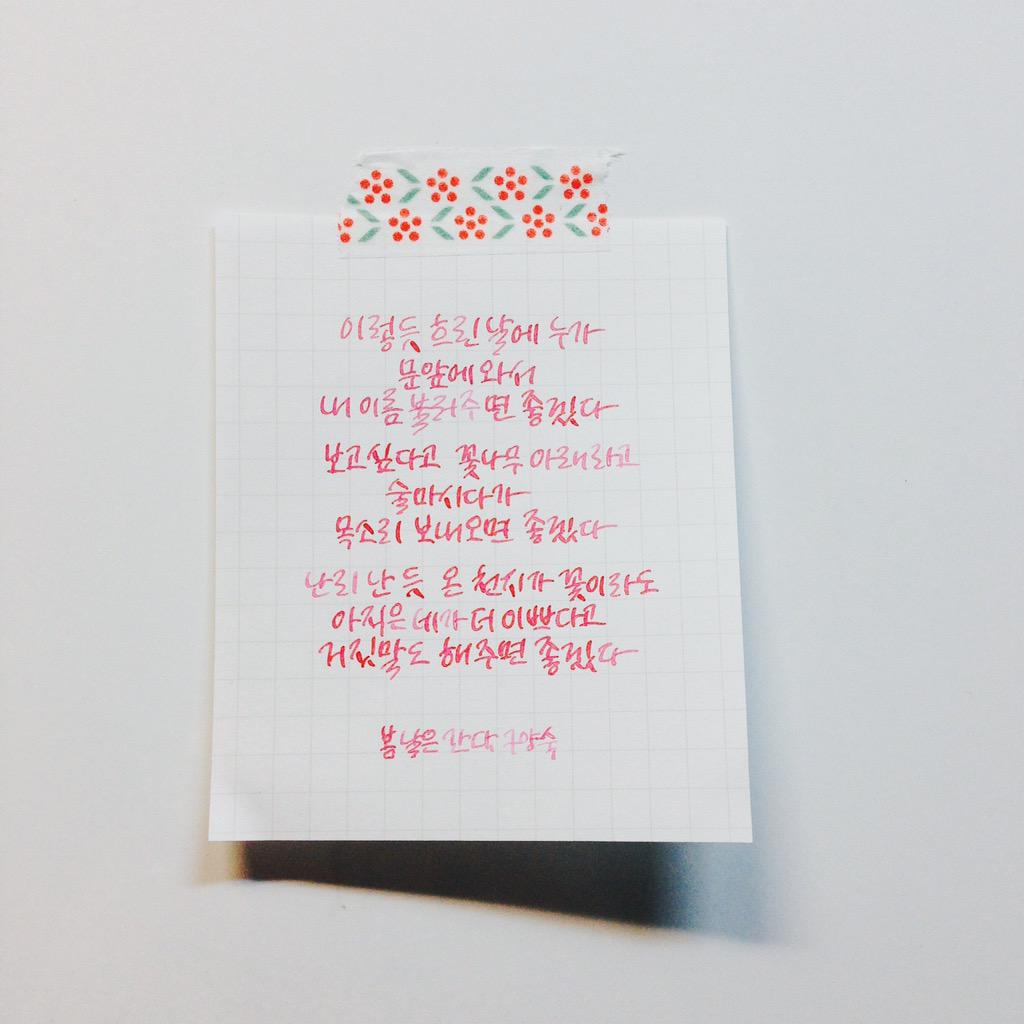 이렇듯 흐린 날에 누가
문앞에 와서
내 이름 불러주면 좋겠다
보고싶다고 꽃나무 아래라고
술마시다가
목소리 보내오면 좋겠다
난리 난 듯 온 천지가 꽃이라도
아직은 네가 더 이쁘다고
거짓말도 해주면 좋겠다
봄날은 간다, 구양숙